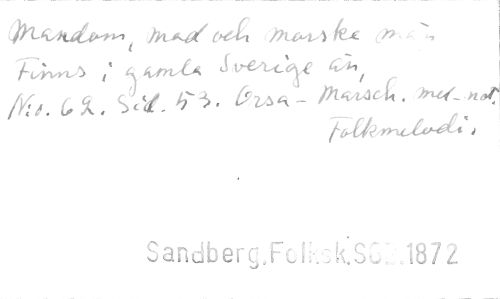 Mandom, mod och morska män
Finns i gamla Sverige än,
N:o. 62. Sid. 53. Orsa - Marsch. mel-not.
Folkmelodi.
Sandberg.Folksk.S62.1872